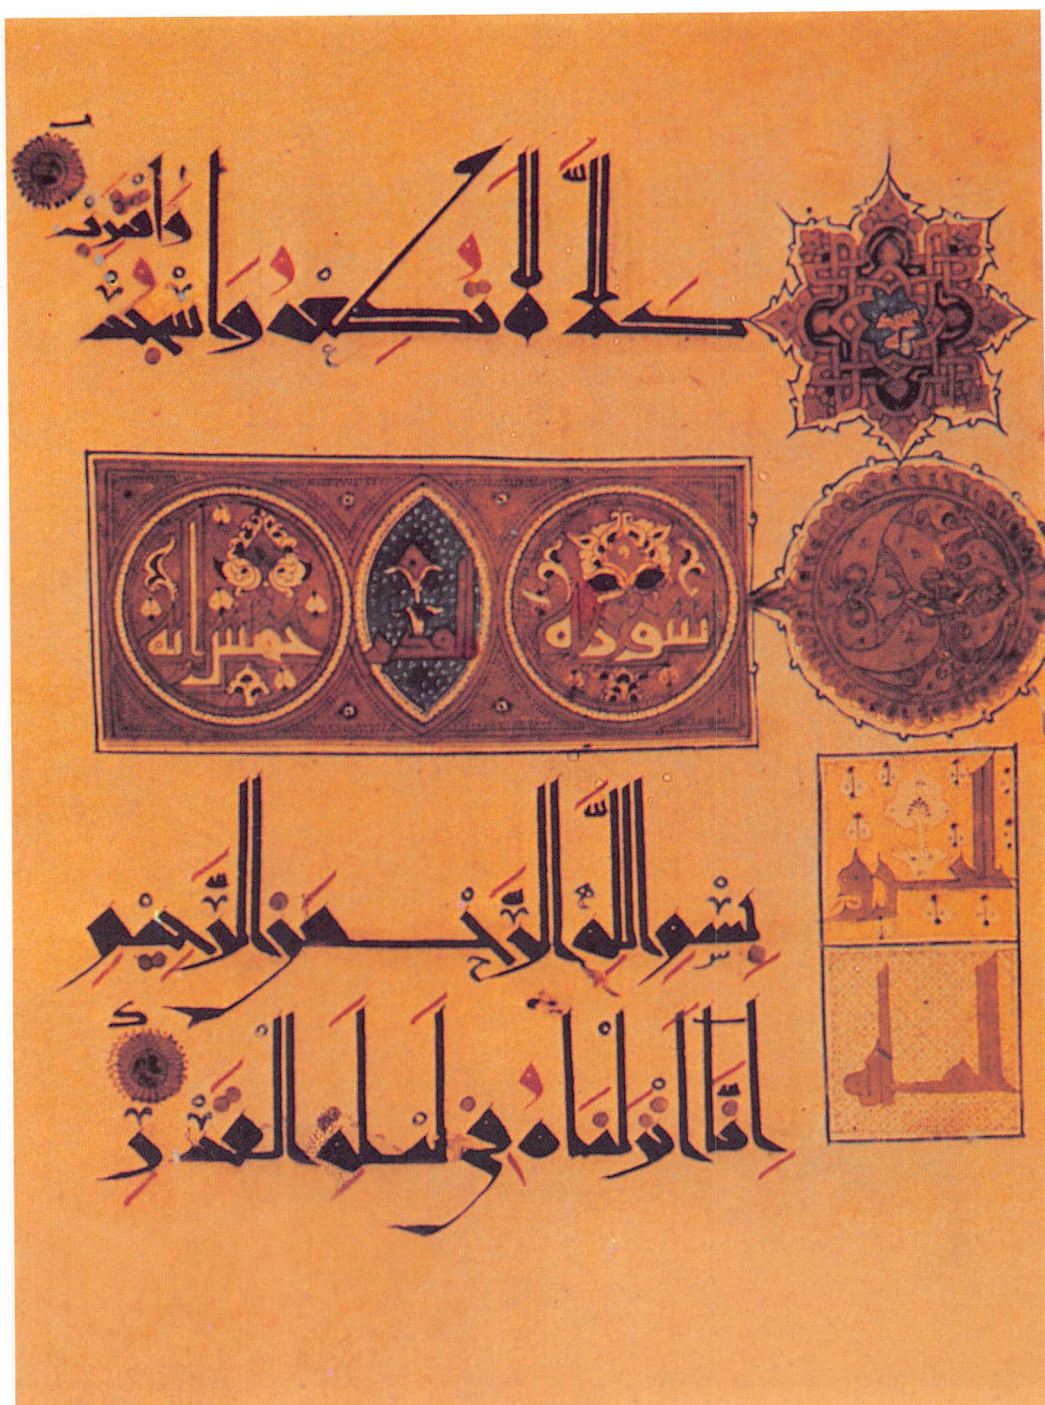 كَلَّا لَا تُطِعْهُ وَاسْجُدْ
وَاقْتَرِبْ
سورة القدر خمس آية
بِسْمِ اللَّهِ الرَّحْمَنِ الرَّحِيمِ
إِنَّا أَنْزَلْنَاهُ فِي لَيْلَةِ الْقَدْرِ